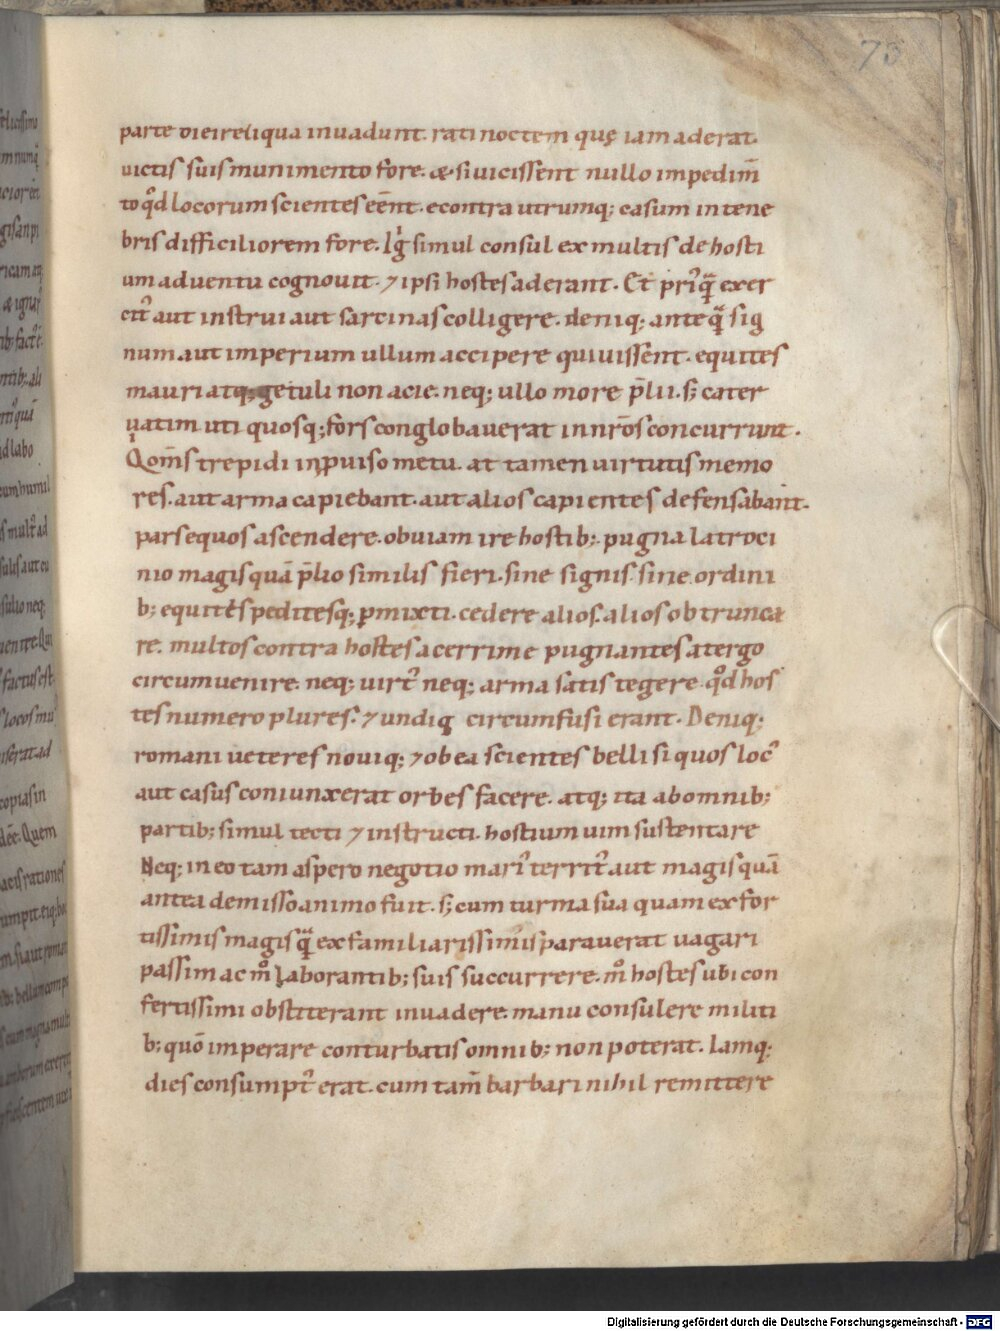 73
parte diei reliqua inuadunt. rati noctem quę iam aderat.
uictis suis munimento fore. & si uicissent nullo impedim̄
to qd̊ locorum scientes eēnt. econtra utrumq; casum in tene
bris difficiliorem fore. Igͥ simul consul ex multis de hosti
um aduentu cognouit. ⁊ ipsi hostes aderant. Et priꝰq̄ exer
citꝰ aut instrui aut sarcinas colligere. deniq; anteq̄ sig
num aut imperium ullum accipere quiuissent. equites
mauri atq; getuli non acie. neq; ullo more p̄lii. s; cater
uatim uti quosq; fors conglobauerat in nr̄os concurrunt.
Qom̄s trepidi inꝓuiso metu. at tamen uirtutis memo
res. aut arma capiebant. aut alios capientes defensabant.
pars equos ascendere. obuiam ire hostib;. pugna latroci
nio magis quā p̄lio similis fieri. sine signis. sine ordini
b; equites peditesq; ꝑmixti. cedere alios. alios obtrunca
re. multos contra hostes acerrime pugnantes a tergo
circumuenire. neq; uirtꝰ neq; arma satis tegere qd̊ hos
tes numero plures. ⁊ undiq; circumfusi erant. Deniq;
romani ueteres nouiq; ⁊ ob ea scientes belli si quos locꝰ
aut casus coniunxerat orbes facere. atq; ita ab omnib;
partib; simul tecti ⁊ instructi. hostium uim sustentare
Neq; in eo tam aspero negotio mariꝰ territꝰ aut magis quā
antea demisso animo fuit. s; cum turma sua quam ex for
tissimis magis q̄ ex familiarissimis parauerat uagari
passim ac m̊ laborantib; suis succurrere. m̊ hostes ubi con
fertissimi obstiterant inuadere. manu consulere militi
b; quō imperare conturbatis omnib; non poterat. Iamq;
dies consumptꝰ erat. cum tam̄ barbari nihil remittere
Digitalisierung gefördert durch die Deutsche Forschungsgemeinschaft - DFG